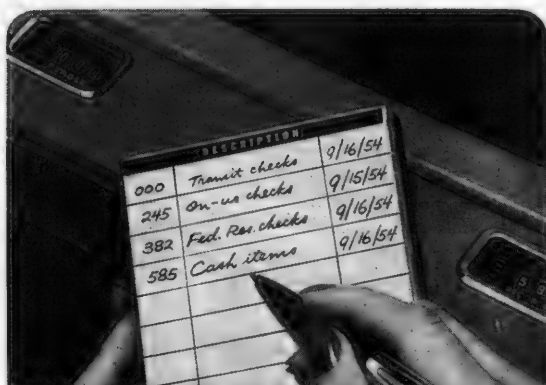 DESCRIPTION
000 Transit checks 9/16/54
245 On-us checks 9/15/54
382 Fed. Res. checks 9/16/54
585 Cash items 9/16/54